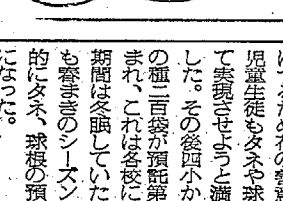 児童生徒もタネや球
て実現させようと満
した。その後四小か
の種二百袋が預託第
まれ、これは各校に
期間は冬眠していた
も春まきのシーズン
的にタネ、球根の預
になった。